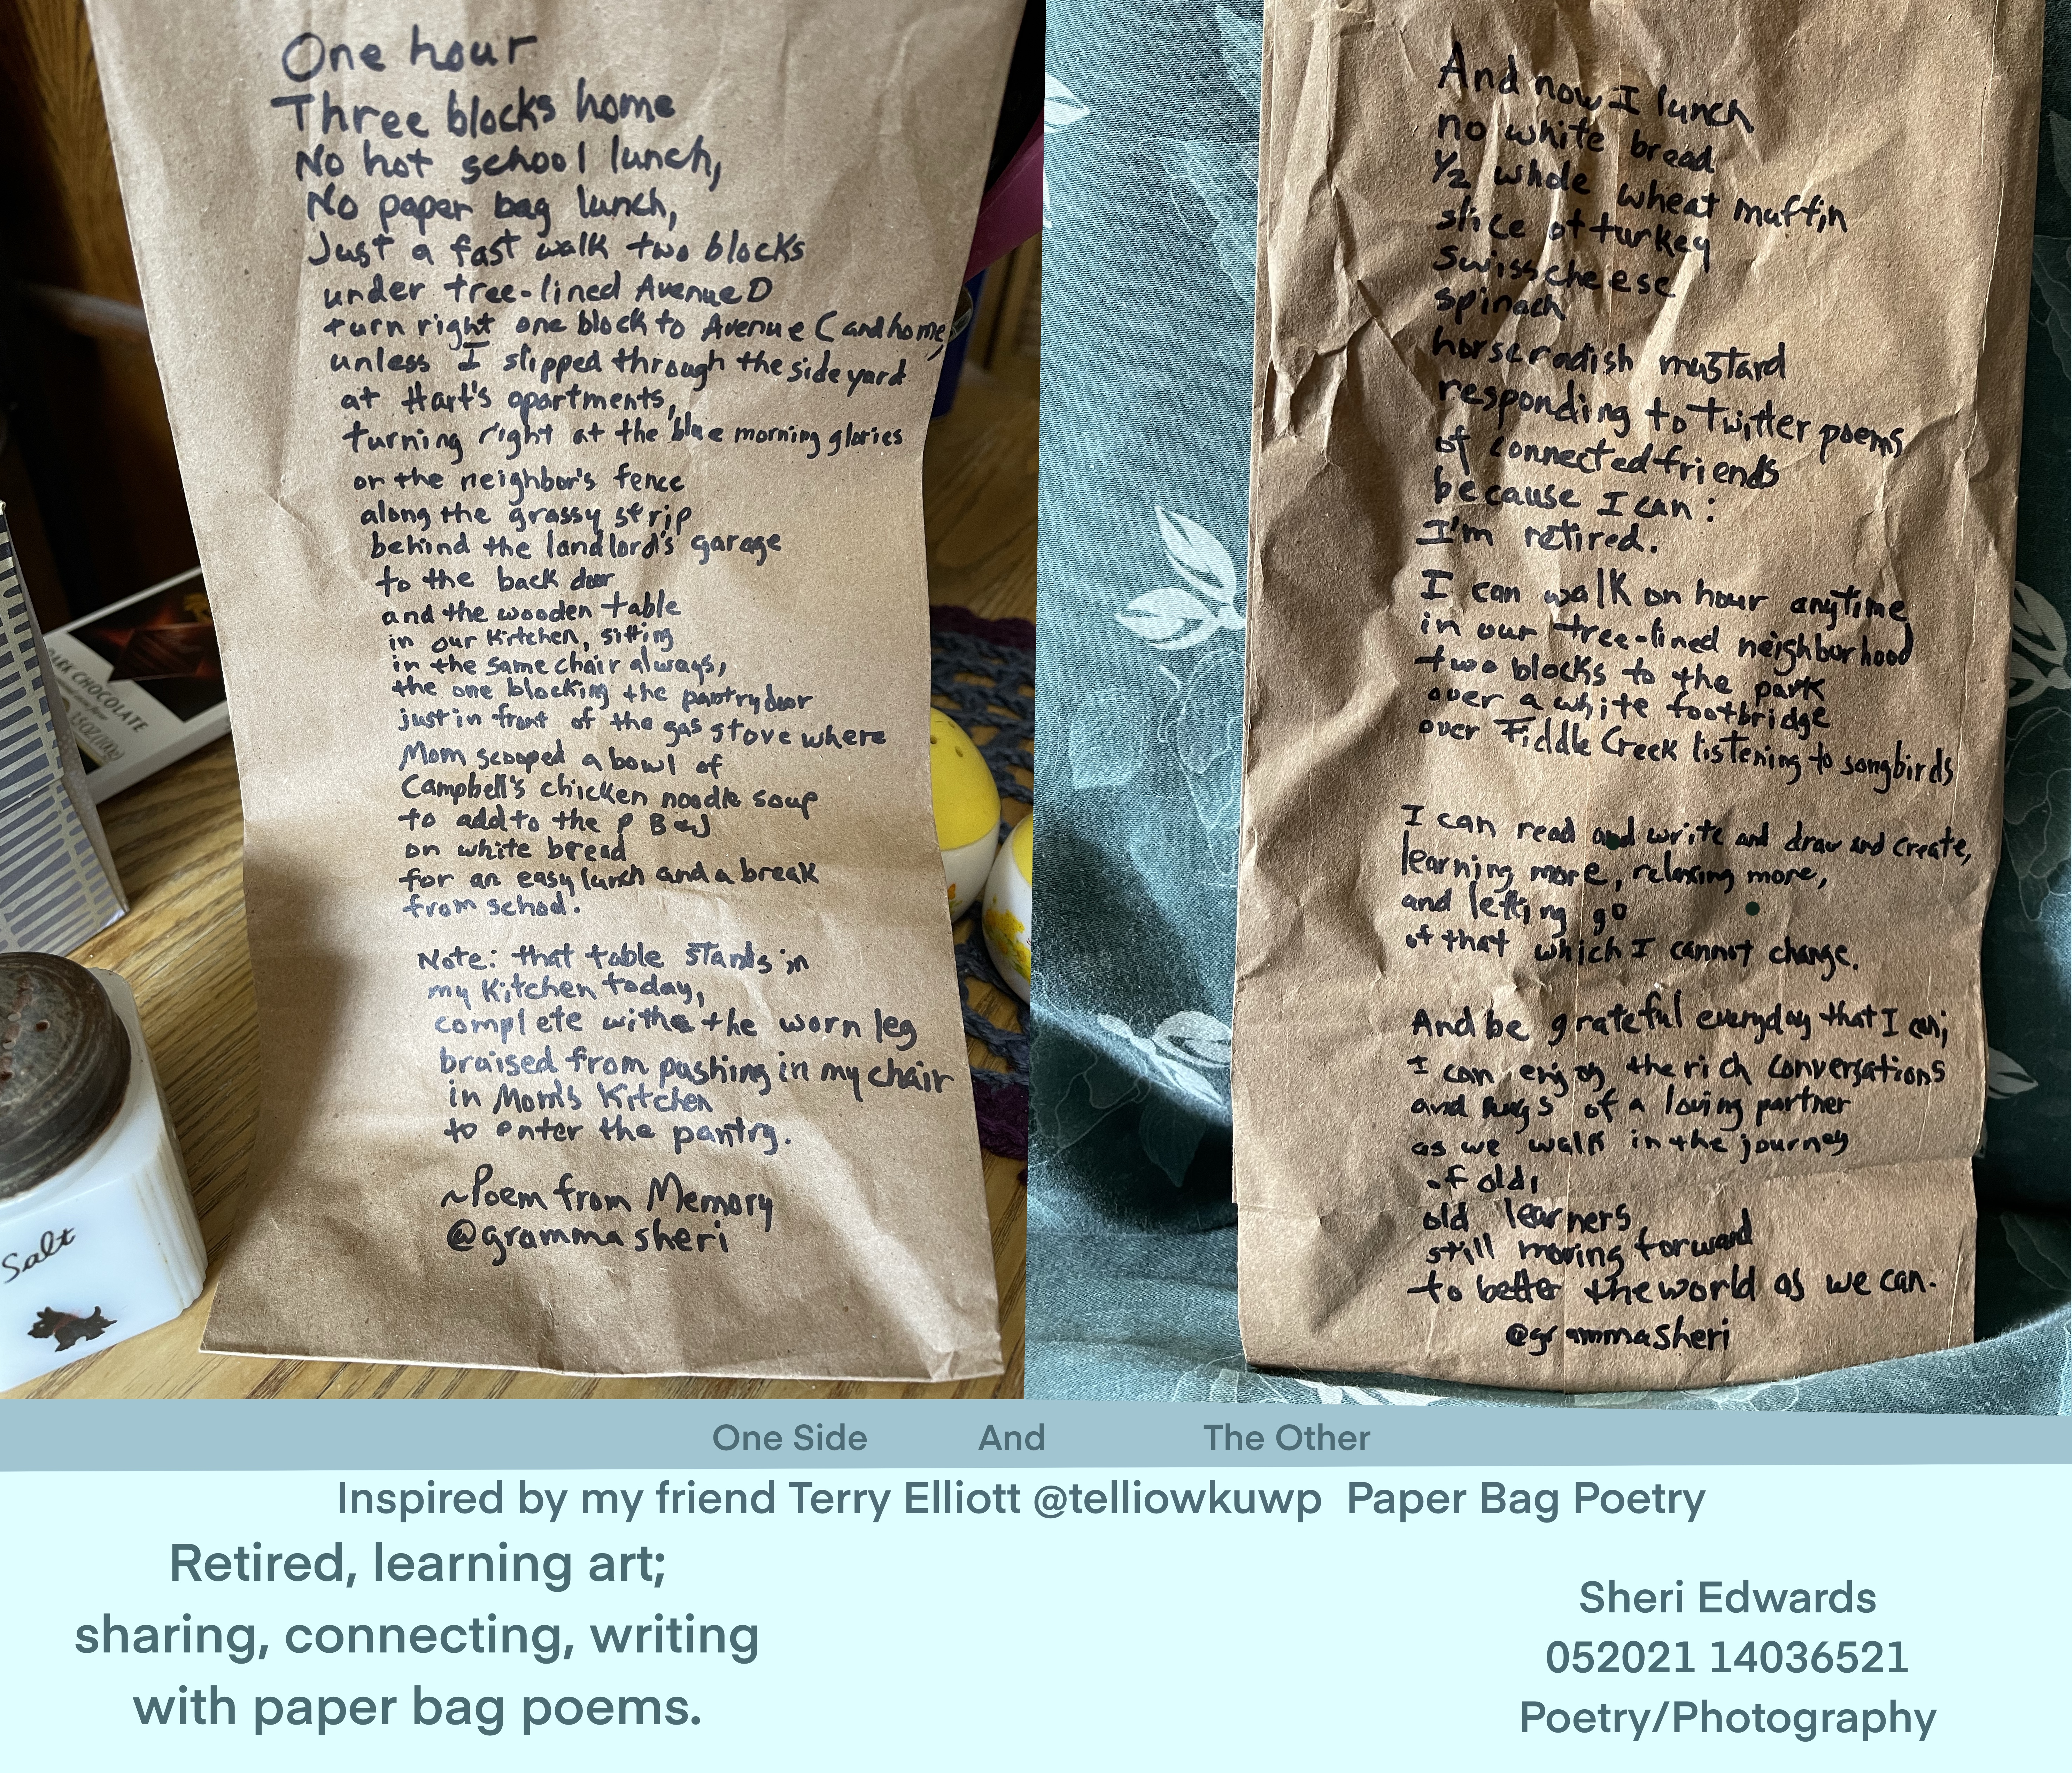 One hour
Three blocks home
No hot school lunch,
No paper bag lunch,
Just a fast walk two blocks
under tree-lined Avenue D
turn right one block to Avenue C and home,
unless I slipped through the side yard
at Hart's apartments,
turning right at the blue morning glories
on the neighbor's fence
along the grassy strip
behind the landlord's garage
to the back door
and the wooden table
in our kitchen, sitting
in the same chair always,
the one blocking the pantry door
just in front of the gas stove where
Mom scooped a bowl of
Campbell's chicken noodle soup
to add to the P B & J
on white bread
for an easy lunch and a break
from school.
Note: that table stands in
my kitchen today,
complete with the worn leg
braised from pushing in my chair
in Mom's Kitchen
to enter the pantry.
~Poem from Memory
@grammasheri
DARK CHOCOLATE
Salt
And now I lunch
no white bread
1/2 whole wheat muffin
slice of turkey
swiss cheese
spinach
horseradish mustard
responding to Twitter poems
of connected friends
because I can:
I'm retired.
I can walk on hour anytime
in our tree-lined neighborhood
two blocks to the park
over a white footbridge
over Fiddle Creek listening to songbirds
I can read and write and draw and create,
learning more, relaxing more,
and letting go
of that which I cannot change.
And be grateful everyday that I can;
I can enjoy the rich conversations
and hugs of a loving partner
as we walk in the journey
of old,
old learners
still moving forward
to better the world as we can.
@grammasheri
One Side And The Other
Inspired by my friend Terry Elliott @telliowkuwp Paper Bag Poetry
Retired, learning art;
sharing, connecting, writing
with paper bag poems.
Sheri Edwards
052021 14036521
Poetry/Photography